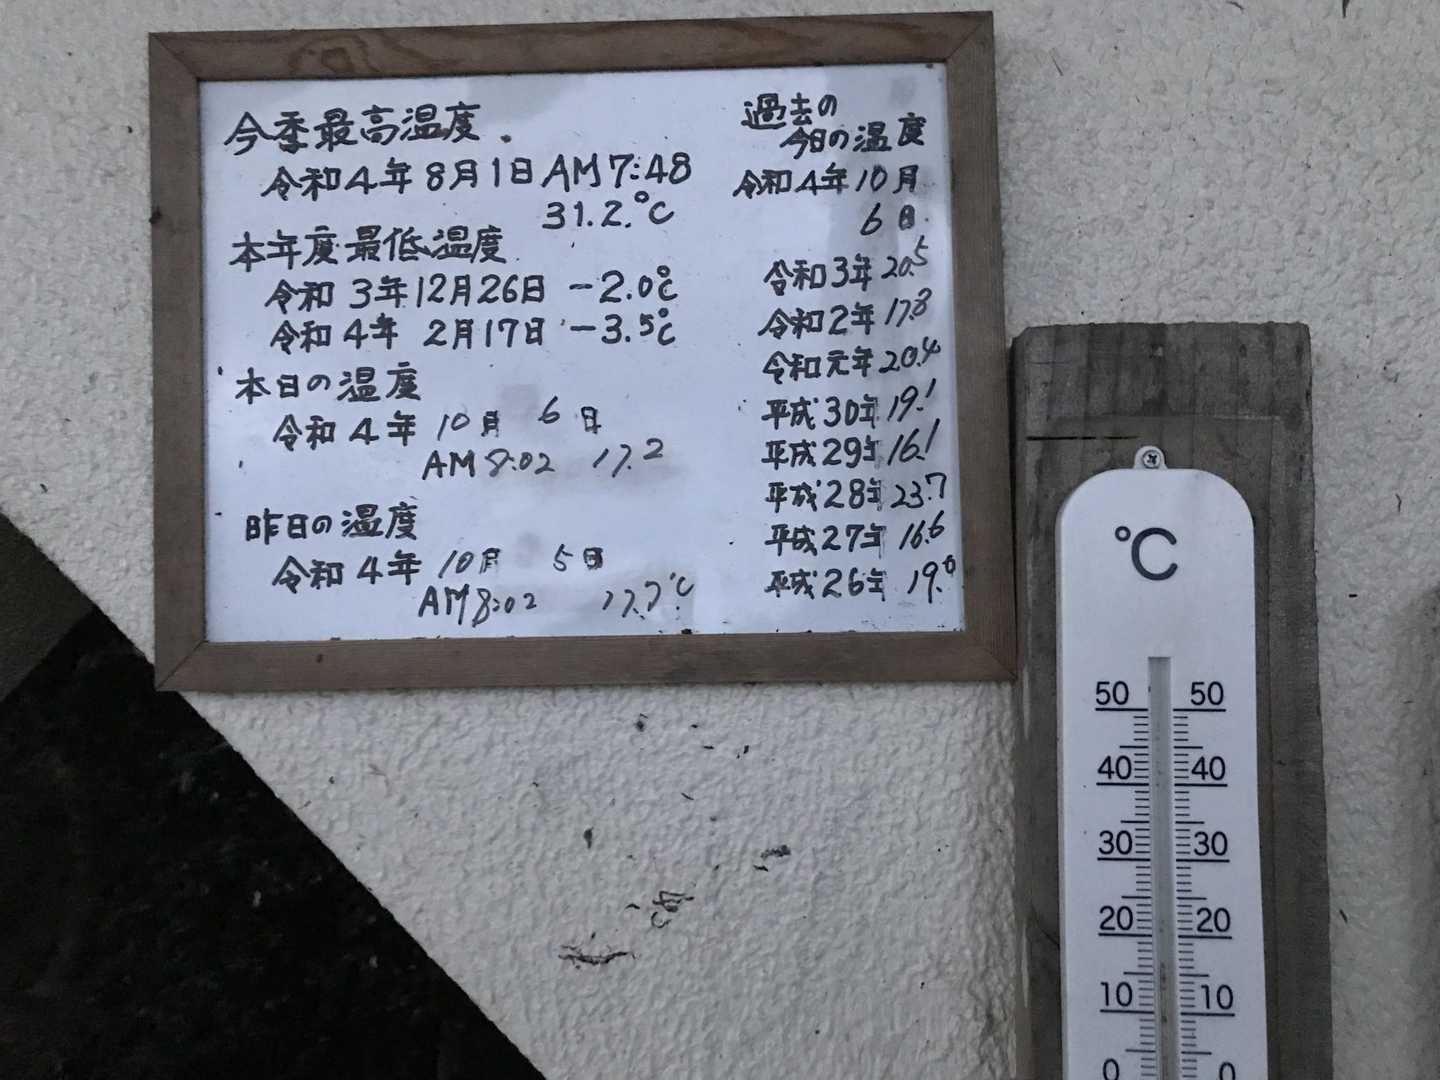 今季最高温度
令和4年8月1日AM7:48
31.2.℃
本年度最低温度
令和3年12月26日 -2.0℃
令和4年 2月17日 -3.5℃
本日の温度
令和4年 10月 6日
AM 8:02 17.2
昨日の温度
令和4年 10月 5日
AM 8:02 17.7℃
過去の
今日の温度
令和4年10月
6日
令和3年 20.5
令和2年 17.8
令和元年 20.4
平成30年 19.1
平成29年 16.1
平成28年 23.7
平成27年 16.6
平成26年 19.0
℃
50 50
40 40
30 30
20 20
10 10
0 0